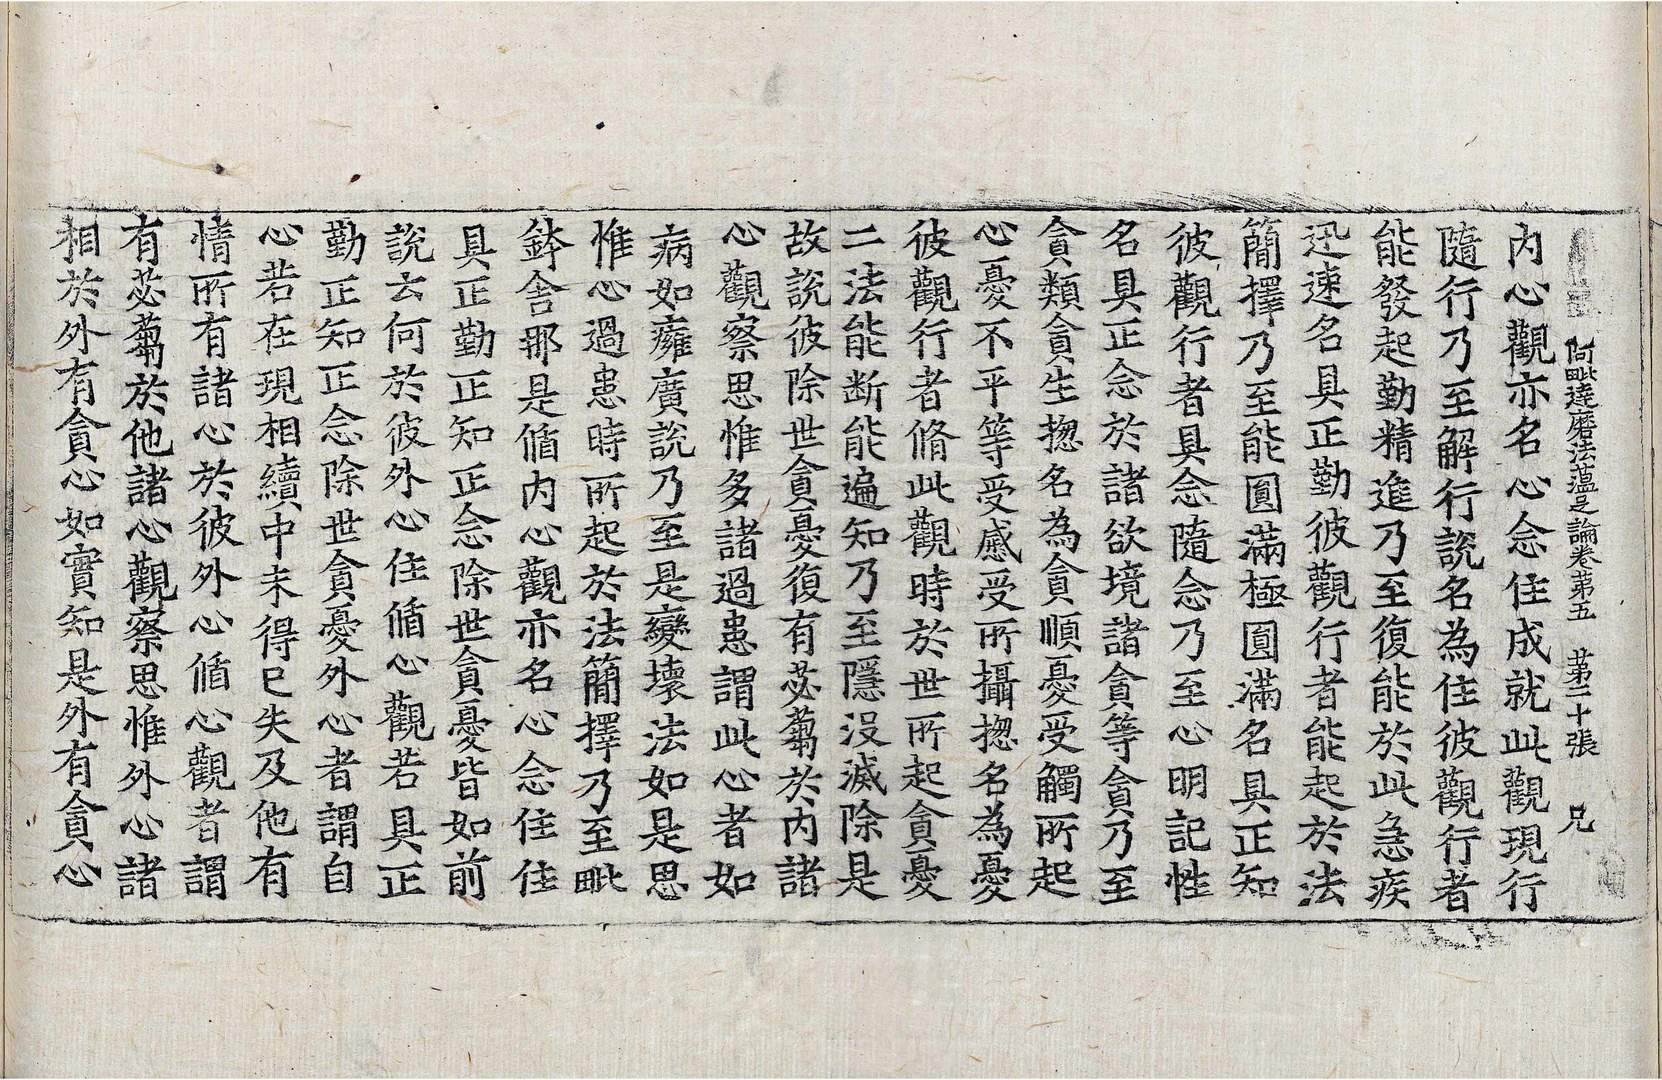 阿毗達磨法蘊足論卷第五　第二十張　兄
內心觀亦名心念住成就此觀現行
隨行乃至解行說名為住彼觀行者
能發起勤精進乃至復能於此急疾
迅速名具正勤彼觀行者能起於法
簡擇乃至能圓滿極圓滿名具正知
彼觀行者具念隨念乃至心明記性
名具正念於諸欲境諸貪等貪乃至
貪類貪生揔名為貪順憂受觸所起
心憂不平等受慼受所攝揔名為憂
彼觀行者脩此觀時於世所起貪憂
二法能断能遍知乃至隱沒滅除是
故說彼除世貪憂復有苾蒭於內諸
心觀察思惟多諸過患謂此心者如
病如癰廣說乃至是變壞法如是思
惟心過患時所起於法簡擇乃至毗
鉢舍那是循內心觀亦名心念住住
具正勤正知正念除世貪憂皆如前
說云何於彼外心住循心觀若具正
勤正知正念除世貪憂外心者謂自
心若在現相續中未得已失及他有
情所有諸心於彼外心循心觀者謂
有苾蒭於他諸心觀察思惟外心諸
相於外有貪心如實知是外有貪心